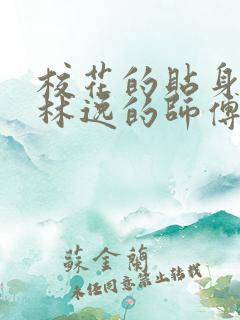 校花的貼身
林逸的師傅
蘇金蘭
未經同意禁止轉載